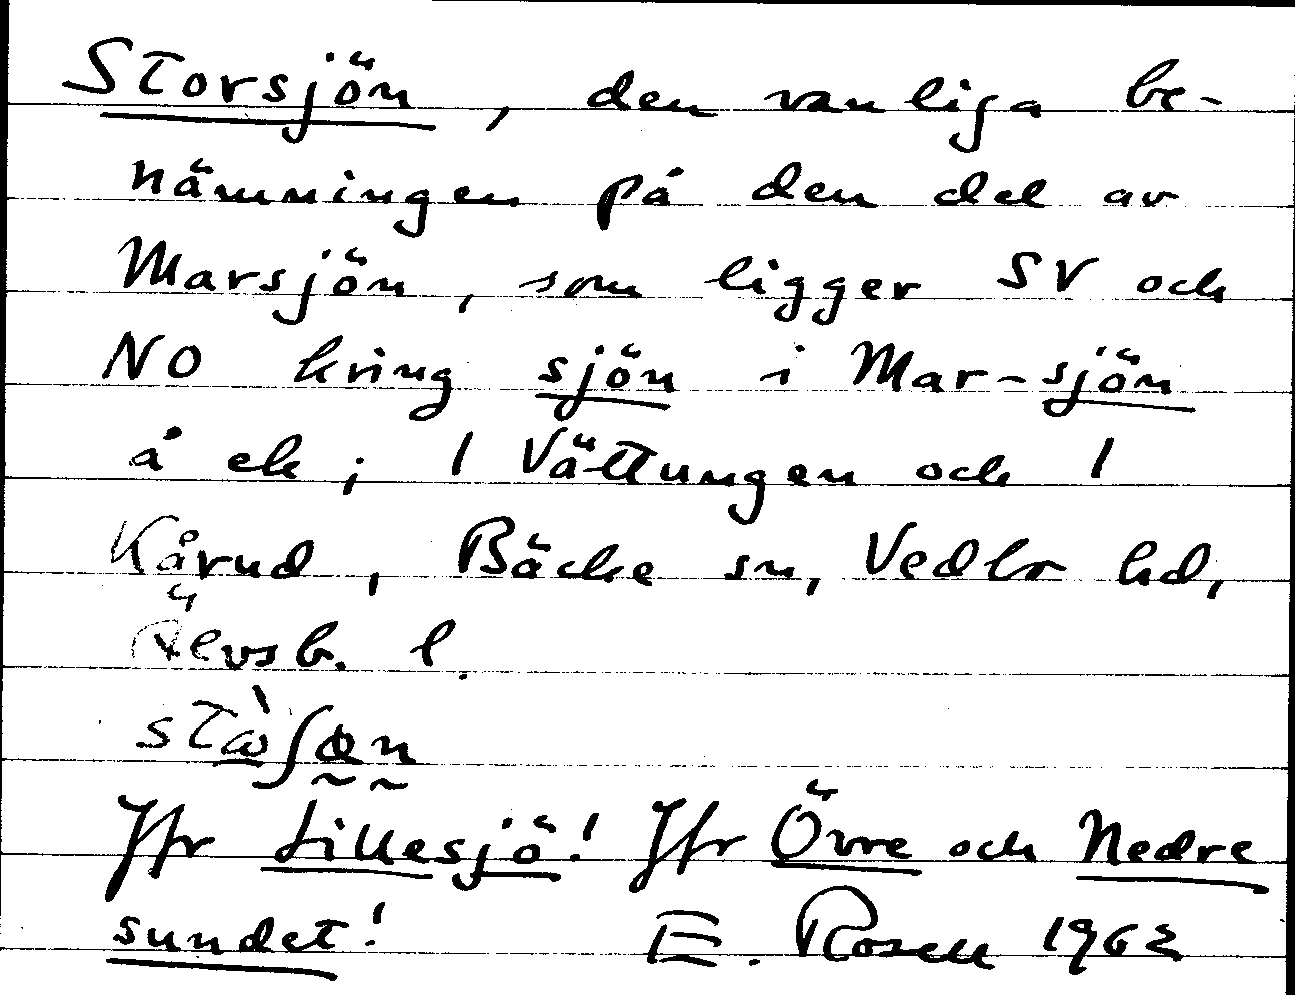 Storsjön, den vanliga be-
nämningen på den del av
Marsjön, som ligger SV och
NO kring sjön i Mar-sjön
å ek; 1 Vättungen och 1
Kårud, Bäcke sn, Vedbo hd,
Älvsb. l.
Jfr Lillesjö! Jfr Övre och Nedre
sundet! E. Rosell 1962